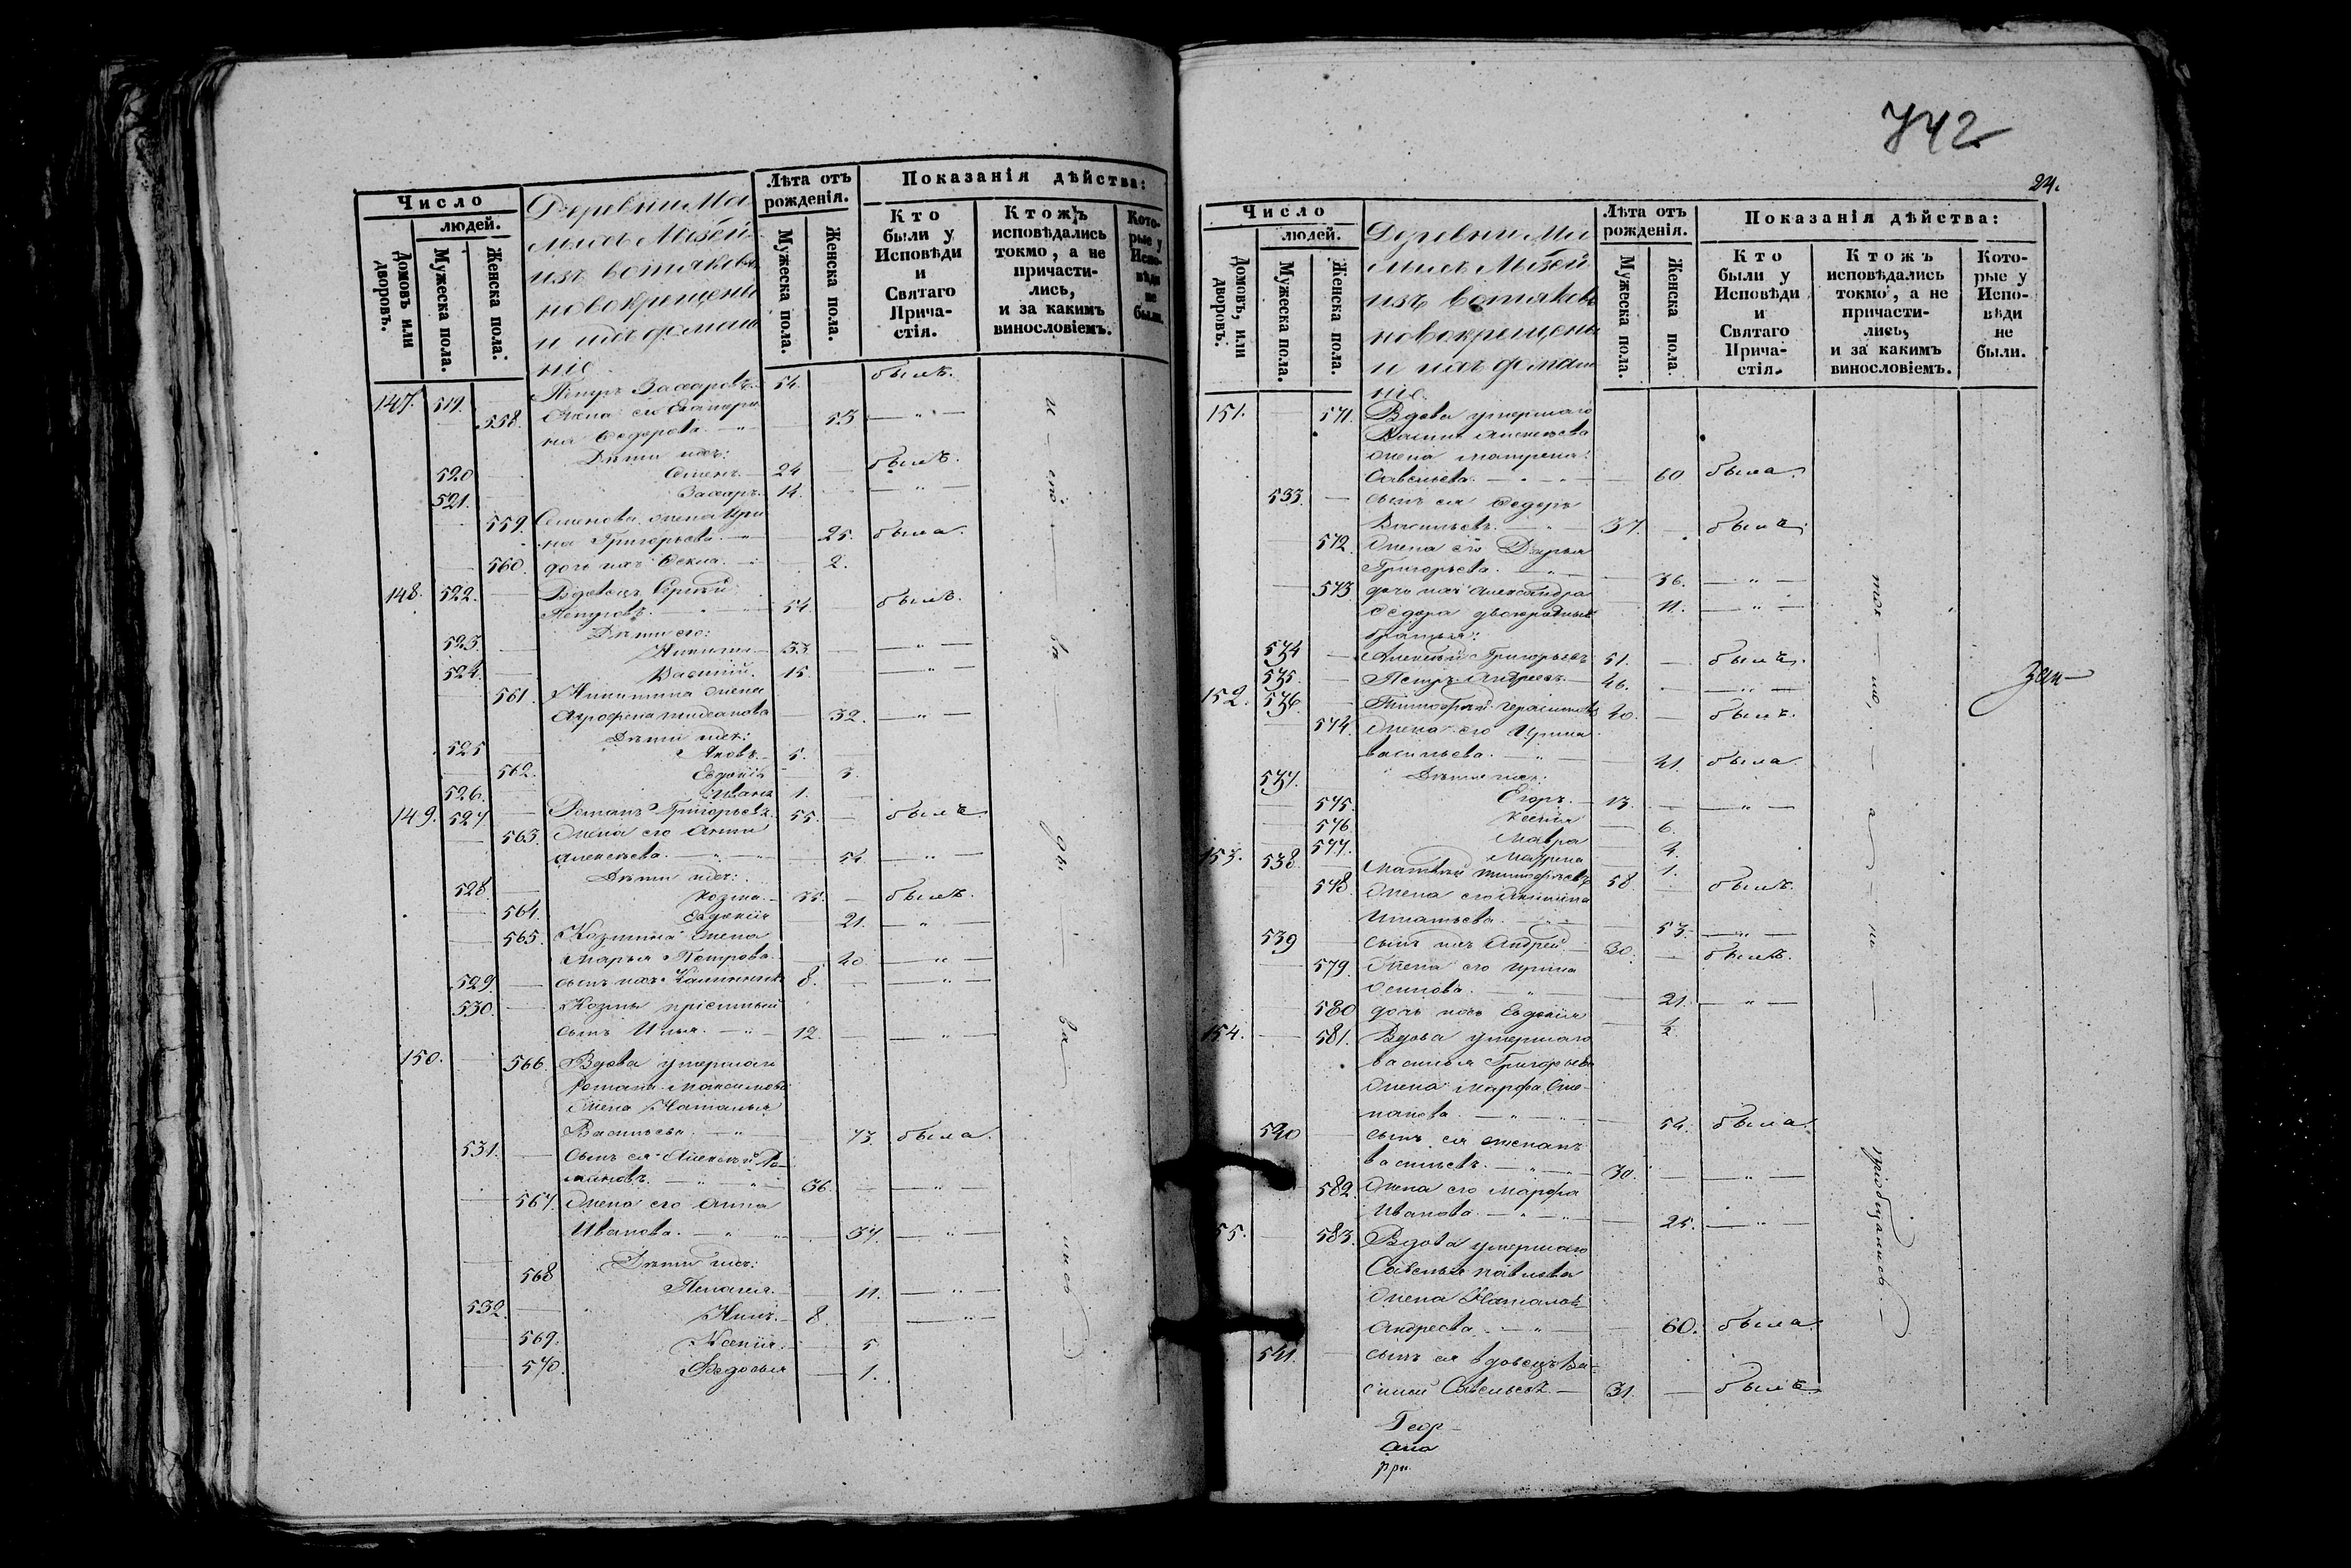 Число
людей.
Домовъ или дворовъ.
Мужеска пола.
Женска пола.
Деревни Ма-
изъ вотяковъ
новокрещены
и ихъ домаш
ніе
Лѣта отъ рожденія.
Мужеска пола.
Женска пола.
Показанія дѣйства:
Кто были у Исповѣди и Святаго Прича-стія.
Ктожъ исповѣдались токмо, а не причасти-лись, и за какимъ винословіемъ.
Кото-рые у Испо-вѣди не были.
147. 519. Петръ Захаровъ 54. былъ.
558. Жена его Екатери
на Федорова 53 — " —
Дѣти ихъ:
520 Семенъ 24 былъ.
521. Захаръ 14. — " —
559. Семенова жена Ири
на Григорьева 25. была.
560. дочь ихъ Фекла 2.
148. 522. Вдовецъ Сергѣй
Петровъ 54. былъ.
Дѣти его:
523. Никита 33. — " —
524. Василій 15. — " —
561. Никитина жена
Агрофена 32. — " —
Дѣти ихъ:
525 Яковъ 5.
562. Евдокія 3.
526. Иванъ 1.
149. 527 Романъ Григорьевъ 55. былъ
563. Жена его Анна
Алексѣева 54. — " —
Дѣти ихъ:
528 Козма былъ.
564. Евдокія 21. — " —
565. Козмина жена
Марья Петрова 40. — " —
529. сынъ ихъ 8. — " —
530. Козмы пріемный
сынъ Илья 12. — " —
150. 566. Вдова умершаго
Романа Максимова
жена Наталья
Васильева 73. была.
531. Сынъ ея Алексѣй Ро-
мановъ 36. — " —
567. Жена его Анна
Иванова 37. — " —
Дѣти ихъ:
568 Пелагея 11. — " —
532. 8. — " —
569. Ксенія 5
570. Федосья 1.
742
24.
Число
людей.
Домовъ, или дворовъ.
Мужеска пола.
Женска пола.
Деревни Ма
изъ вотяковъ
новокрещены
и ихъ домаш
ніе
Лѣта отъ рожденія.
Мужеска пола.
Женска пола.
Показанія дѣйства:
Кто были у Исповѣди и Святаго Прича-стія.
Ктожъ исповѣдались токмо, а не причасти-лись, и за какимъ винословіемъ.
Кото-рые у Испо-вѣди не были.
151. 571. Вдова умершаго
Василья Алексѣева
жена Матрена
Савельева 60 была.
533. сынъ ея Федоръ
Васильевъ 37. былъ.
572. Жена его Дарья
Григорьева 36. — " —
573 дочь ихъ Александра 11. — " —
Федора двоюродные
братья:
534 Алексѣй Григорьевъ 51. былъ.
535. Петръ Андреевъ 46. — " —
152. 536. Тимофей Герасимовъ 40. былъ.
574. Жена его Ирина
Васильева 41. была.
Дѣти ихъ:
537. Егоръ 13. — " —
575. Ксенія 6.
576 Мавра 4.
577. Матрена 1.
153. 538 Матвѣй Тимофеевъ 58 былъ.
578. Жена его Акилина
Игнатьева 53. — " —
539 сынъ ихъ Андрей 30. былъ.
579. Жена его Ирина
Осипова 21. — " —
580 дочь ихъ Евдокія
154. 581. Вдова умершаго
Василья Григорьева
жена Марфа Сте-
панова 54. была.
540 сынъ ея Степанъ
Васильевъ 30. — " —
582. Жена его Марфа
Иванова 25. — " —
55. 583. Вдова умершаго
Савелья Павлова
жена Наталья
Андреева 60. была.
541. сынъ ея вдовецъ Ва-
силій Савельевъ 31. былъ.